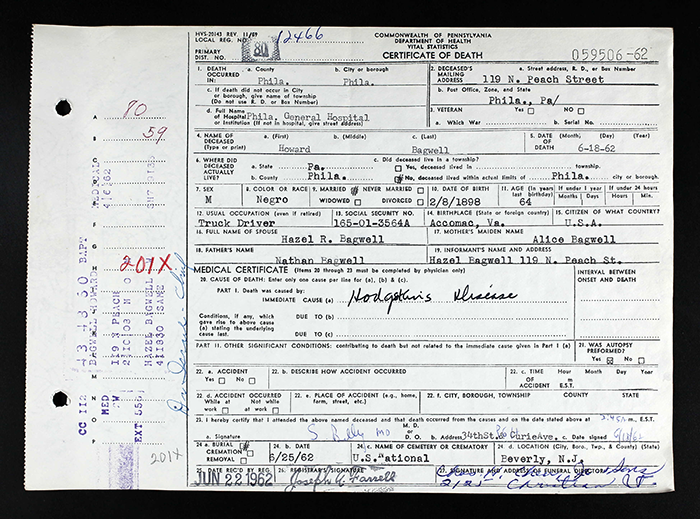 HVS-20143 REV. 11/59
LOCAL REG. NO. 12466
PRIMARY DIST. NO. 80
COMMONWEALTH OF PENNSYLVANIA
DEPARTMENT OF HEALTH
VITAL STATISTICS
CERTIFICATE OF DEATH
059506-62
1. DEATH OCCURRED IN: a. County b. City or borough
Phila. Phila.
c. If death did not occur in City or borough, give name of township (Do not use R. D. or Box Number)
d. Full Name of Hospital or Institution (If not in hospital, give street address)
Phila. General Hospital
2. DECEASED'S MAILING ADDRESS a. Street address, R. D., or Box Number
119 N. Peach Street
b. Post Office, Zone, and State
Phila., Pa/
3. VETERAN Yes NO
a. Which War b. Serial No.
4. NAME OF DECEASED (Type or print) a. (First) b. (Middle) c. (Last)
Howard Bagwell
5. DATE OF DEATH (Month) (Day) (Year)
6-18-62
6. WHERE DID DECEASED ACTUALLY LIVE? a. State Pa. b. County Phila.
c. Did deceased live in a township?
Yes, deceased lived in township.
No, deceased lived within actual limits of Phila. city or borough.
7. SEX M
8. COLOR OR RACE Negro
9. MARRIED NEVER MARRIED
WIDOWED DIVORCED
10. DATE OF BIRTH 2/8/1898
11. AGE (In years last birthday) 64
If under 1 year Month Days
If under 24 hours Hours Min.
12. USUAL OCCUPATION (even if retired)
Truck Driver
13. SOCIAL SECURITY NO.
165-01-3564A
14. BIRTHPLACE (State or foreign country)
Accomac, Va.
15. CITIZEN OF WHAT COUNTRY?
U.S.A.
16. FULL NAME OF SPOUSE
Hazel R. Bagwell
17. MOTHER'S MAIDEN NAME
Alice Bagwell
18. FATHER'S NAME
Nathan Bagwell
19. INFORMANT'S NAME AND ADDRESS
Hazel Bagwell 119 N. Peach St.
MEDICAL CERTIFICATE (Items 20 through 23 must be completed by physician only)
20. CAUSE OF DEATH: Enter only one cause per line for (a), (b) & (c).
INTERVAL BETWEEN ONSET AND DEATH
PART I. Death was caused by:
IMMEDIATE CAUSE (a) Hodgkin's Disease
Conditions, if any, which gave rise to above cause (a) stating the underlying cause last.
DUE TO (b)
DUE TO (c)
PART II. OTHER SIGNIFICANT CONDITIONS: contributing to death but not related to the immediate cause given in Part I (a)
21. WAS AUTOPSY PREFORMED?
YES NO
22. a. ACCIDENT Yes No
22. b. DESCRIBE HOW ACCIDENT OCCURRED
22. c. TIME OF ACCIDENT Hour Month Day Year
a.m. E.S.T.
22. d. ACCIDENT OCCURRED
While at work Not while at work
22. e. PLACE OF ACCIDENT (e.g., home, farm, street, etc.)
22. f. CITY, BOROUGH, TOWNSHIP COUNTY STATE
23. I certify that I attended the above named deceased and that death occurred from the causes and on the date stated above at m., E.S.T.
a. Signature M. D. D. O. b. Address 34th St. & Curie Ave. c. Date signed
24. a. BURIAL CREMATION REMOVAL
24. b. DATE
6/25/62
24. c. NAME OF CEMETERY OR CREMATORY
U.S. National
24. d. LOCATION (City, Boro, Twp., & County) (State)
Beverly, N.J.
25. DATE REC'D BY REG.
JUN 22 1962
26. REGISTRAR'S SIGNATURE
Joseph A. Farrell
27. SIGNATURE AND ADDRESS OF FUNERAL DIRECTOR
Sons
Christian St
70
59
201X
201X
434330
BAGWELL HOWARD BAPT
119 N PEACH
HAZEL BAGWELL
SAME
CC 112
MED
EXT 556